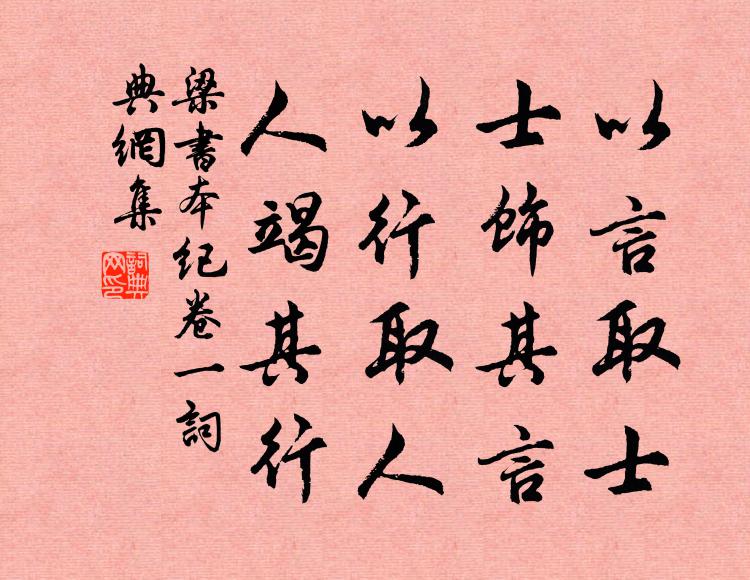 以言取士
士飾其言
以行取人
人竭其行
梁書本紀卷一詞
典網集
詞典網印